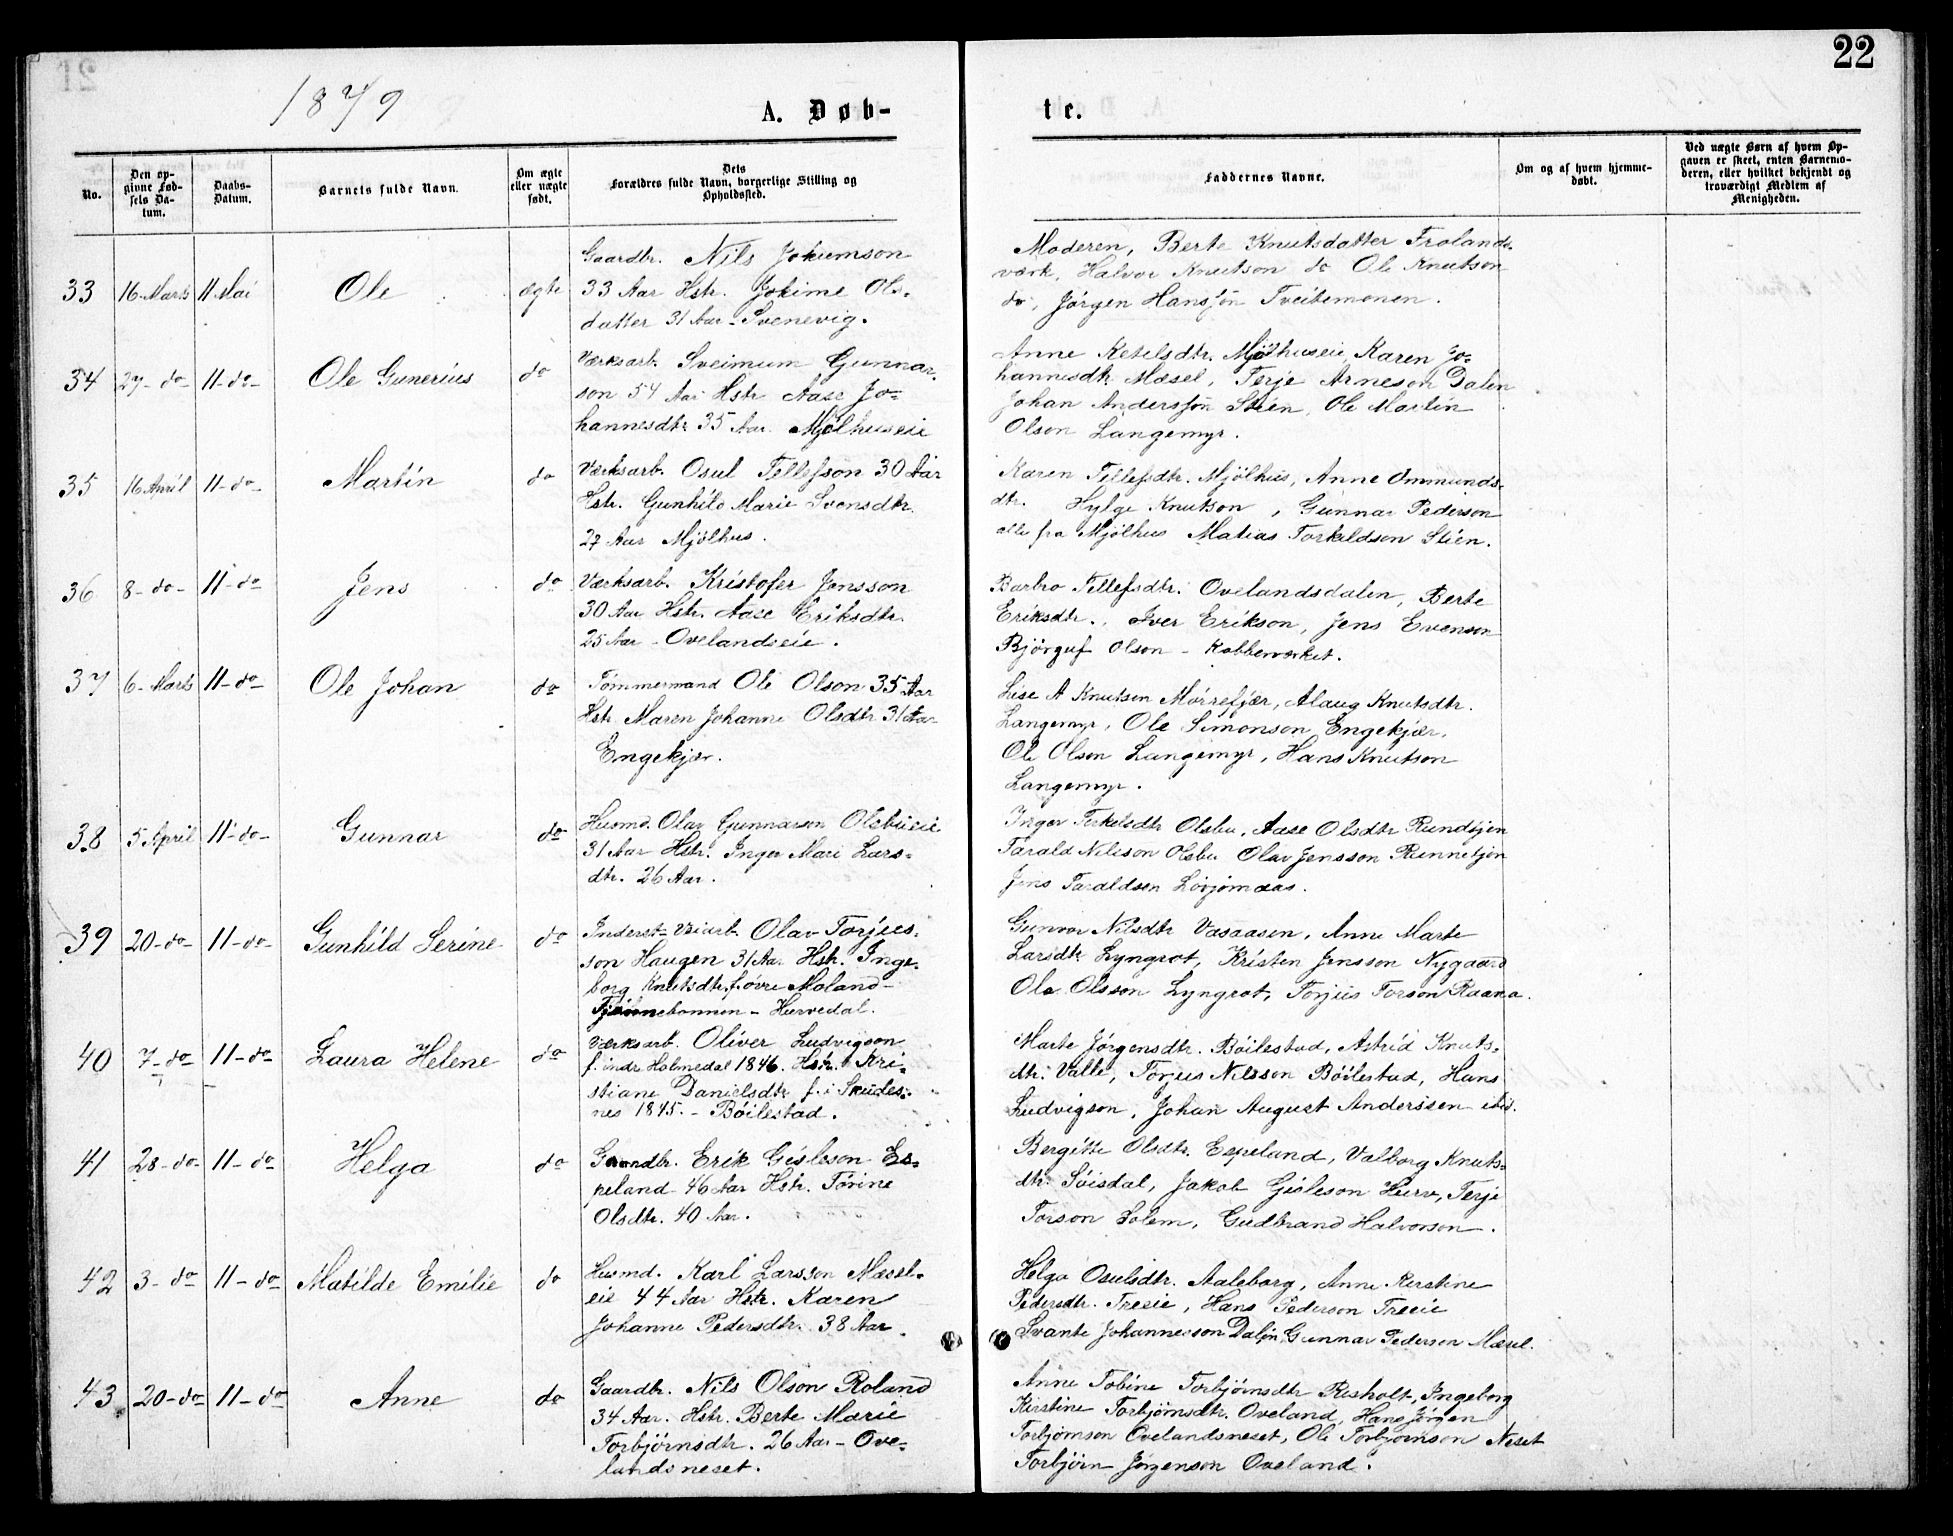 22
1879
A. Døb-
te.
No.
Den op-
givne Fød-
sels Da-
tum.
Daabs-
Datum.
Barnets fulde Navn.
Om ægte
eller uægte
født.
Dets
Forældres fulde Navn, borgerlige Stilling og
Opholdssted.
Faddernes Navne.
Om og af hvem hjemme-
døbt.
Ved uægte Børn af hvem Op-
gaven er skeet, enten Barnemo-
deren, eller hvilket bekjendt og
troværdigt Medlem af
Menigheden.
33 16 Marts 11 Mai Ole ægte
Gaardbr. Nils Jokumson
33 Aar Hstr. Jokime Ols-
datter 31 Aar - Svenevig.
Moderen, Berte Knutsdatter Frolands-
værk, Halvor Knutson do Ole Knutson
do, Jørgen Hansson Tveitemonen.
34 27-do- 11-do- Ole Gunerius do
Værksarb. Sveinum Gunnar-
son 54 Aar Hstr Aase Jo-
hannesdtr 35 Aar. Mjølhuseie
Anne Ketilsdtr. Mjølhuseie, Karen Jo-
hannesdtr Mæsel, Terje Arneson Dalen
Johan Andersson Stien, Ole Martin
Olson Langemyr.
35 16 April 11-do- Martin do
Værksarb. Osul Tellefson 30 Aar
Hstr. Gunhild Marie Svensdtr.
27 Aar Mjølhus.
Karen Tellefsdtr. Mjølhus, Anne Ommunds-
dtr. Hylge Knutson, Gunnar Pederson
alle fra Mjølhus Matias Torkildson Stien.
36 8-do- 11-do Jens do
Værksarb. Kristofer Jensson
30 Aar Hstr. Aase Eriksdtr.
25 Aar - Ovelandseie.
Barbro Tellefsdtr. Ovelandsdalen, Berte
Eriksdtr., Iver Erikson, Jens Evenson
Bjørguf Olson - Kobberværket.
37 6-Marts 11-do- Ole Johan do
Tømmermand Ole Olson 35 Aar
Hstr Maren Johanne Olsdtr 31 Aar
Engekjær.
Lise A Knutsen Mørrefjær, Alaug Knutsdtr.
Langemyr, Ole Simonson Engekjær,
Ole Olson Langemyr, Hans Knutson
Langemyr.
38 5 April 11-do- Gunnar do
Husmd. Olav Gunnarson Olsbueie
31 Aar Hstr. Inger Mari Lars-
dtr. 26 Aar.
Inger Terkelsdtr Olsbu, Aase Olsdtr
Tarald Nilsson Olsbu Olav Jensson
Jens Taraldsen
39 20-do- 11-do- Gunhild Serine do
Inderst- Veiarb. Olav Torjus-
son Haugen 31 Aar Hstr. Inge-
borg Knutsdtr. f. øvre Moland-
Tjønnebonnen - Hurvedal.
Gunvor Nilsdtr Vasaasen, Anne Marte
Larsdtr Lyngrot, Kristen Jensson Nygaard
Ole Olsson Lyngrot, Torjus Torson Raana.
40 7-do 11-do Laura Helene do
Værksarb. Oliver Ludvigson
f. indre Holmedal 1846. Hstr. Kri-
stiane Danielsdtr f. i Skudes-
nes 1845. - Bøilestad.
Marte Jørgensdtr. Bøilestad, Astrid Knuts-
dtr. Valle, Torjus Nilsson Bøilestad, Hans
Ludvigson, Johan August Anderssen ibid.
41 28-do- 11-do Helga do
Gaardbr. Erik Gisleson Es-
peland 46 Aar Hstr. Torine
Olsdtr. 40 Aar.
Bergitte Olsdtr. Espeland, Valborg Knuts-
dtr. Søisdal, Jakob Gisleson Hurv, Terje
Torson Solem, Gudbrand Halvorson.
42 3-do 11-do Matilde Emilie do
Husmd. Karl Larsson Mæsel-
eie 44 Aar Hstr. Karen
Johanne Pedersdtr. 38 Aar.
Helga Osulsdtr. Aaleborg, Anne Kerstine
Pedersdtr. Treeie, Hans Pederson Treeie
Svante Johannesson Dalen Gunnar Pederson Mæsel.
43 20-do 11-do Anne do
Gaardbr. Nils Olson Roland
34 Aar. Hstr. Berte Marie
Torbjørnsdtr. 26 Aar - Ove-
landsneset.
Anne Tobine Torbjørnsdtr Risholt, Ingeborg
Kirstine Torbjørnsdtr. Oveland, Hans Jørgen
Torbjørnson Ovelandsneset, Ole Torbjørnson Neset
Torbjørn Jørgenson Oveland.